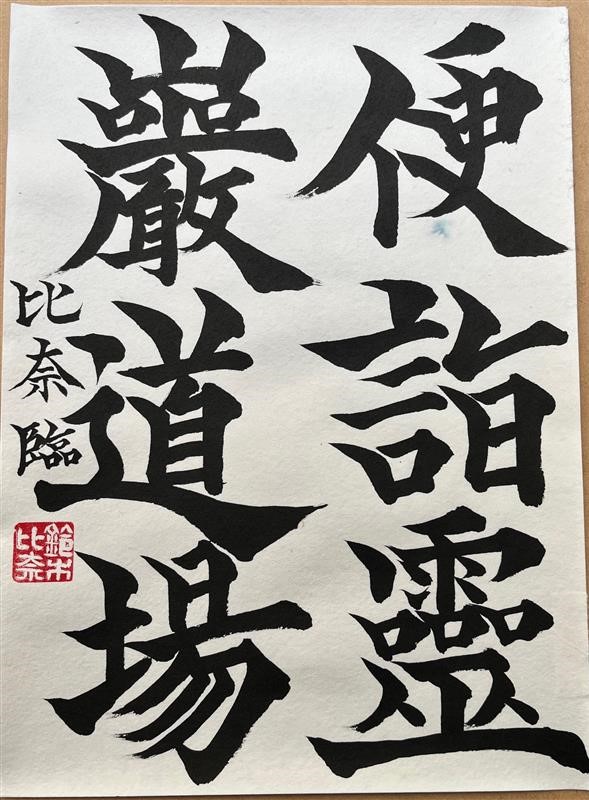 便詣靈
巖道場
比奈臨
鈴木比奈